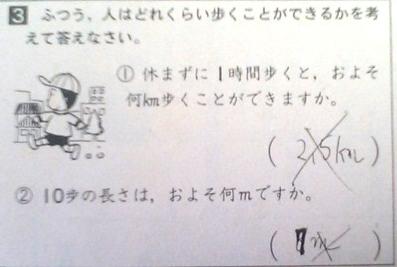 3 ふつう、人はどれくらい歩くことができるかを考
えて答えなさい。
① 休まずに1時間歩くと、およそ
何km歩くことができますか。
( 2.5km )
② 10歩の長さは、およそ何mですか。
( 1m )